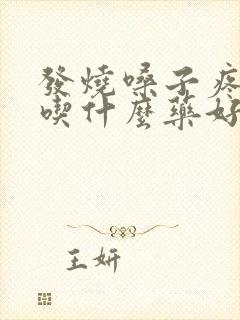 發燒嗓子疼
喫什麼藥好
王妍